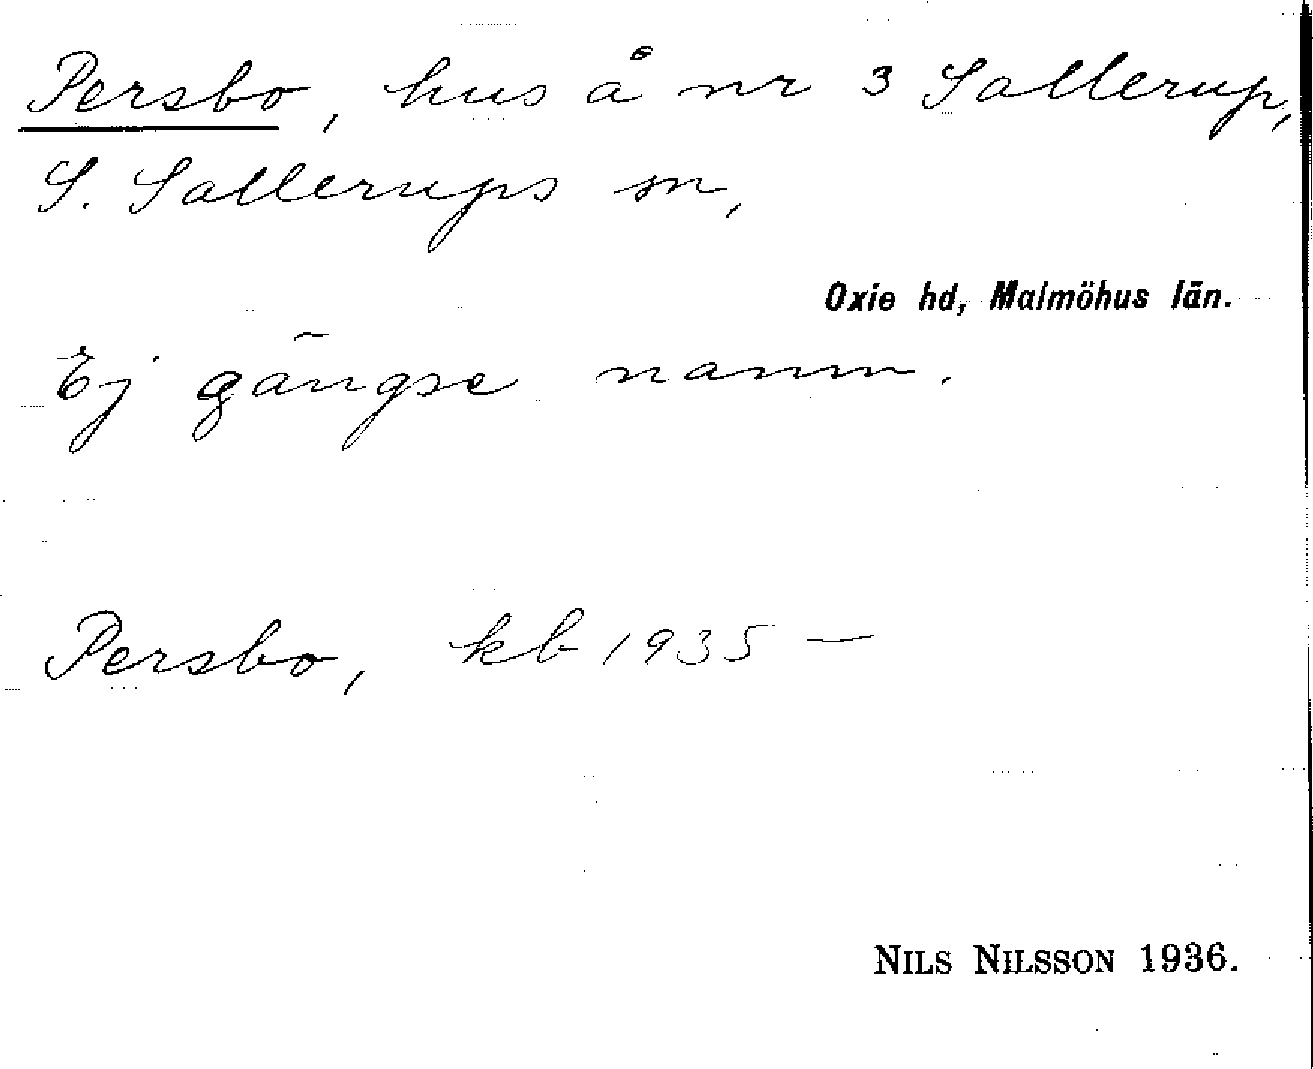 Persbo, hus å nr 3 Sallerup,
S. Sallerups sn,
Oxie hd, Malmöhus län.
Ej gängse namn.
Persbo, kb 1935 —
NILS NILSSON 1936.